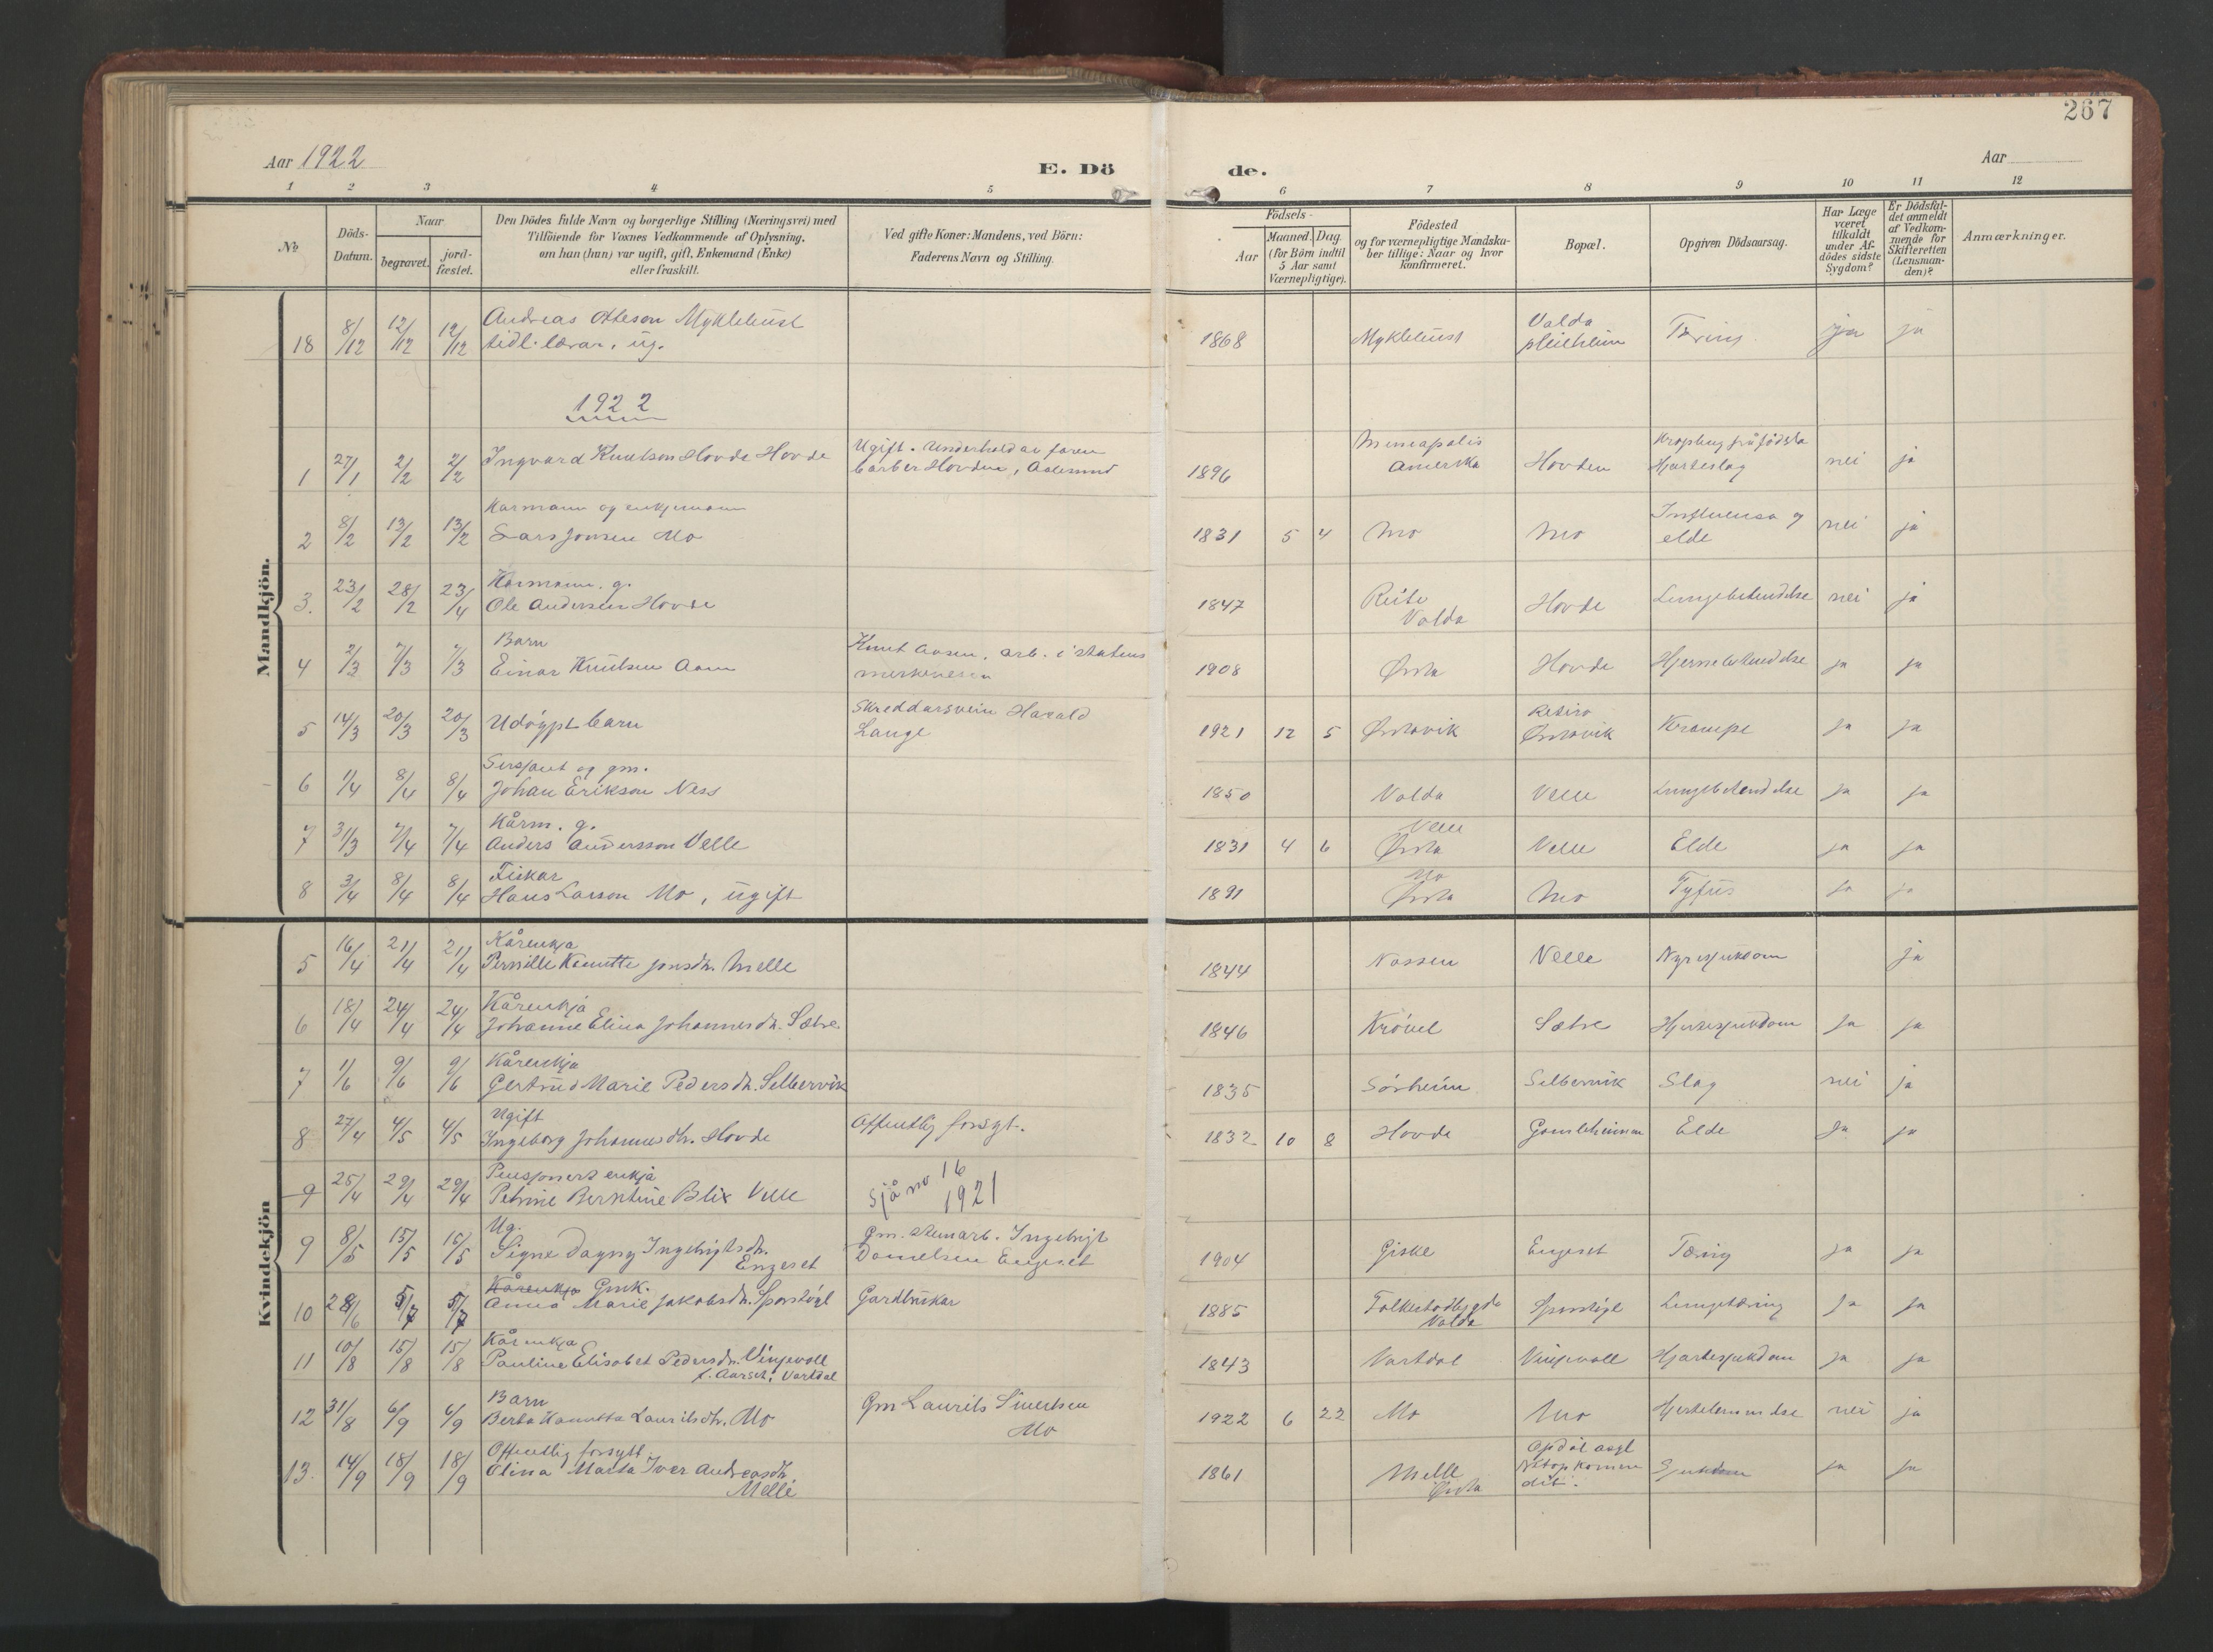 267
Aar 1922
E. Dö
de.
Aar
1 2 3 4 5 6 7 8 9 10 11 12
No
Döds-
Datum.
Naar
begravet.
jord-
fæstet.
Den Dödes fulde Navn og borgerlige Stilling (Næringsvei) med
Tilföiende for Voxnes Vedkommende af Oplysning,
om han (hun) var ugift, gift, Enkemand (Enke)
eller fraskilt.
Ved gifte Koner: Mandens, ved Börn:
Faderens Navn og Stilling.
Födsels-
Aar
Maaned. Dag.
(for Börn indtil
5 Aar samt
Værnepligtige).
Födested
og for værnepligtige Mandska-
ber tillige: Naar og hvor
konfirmeret.
Bopæl.
Opgiven Dödsaarsag.
Har Læge
været
tilkaldt
under Af-
dödes sidste
Sygdom?
Er Dödsfal-
det anmeldt
af Vedkom-
mende for
Skifteretten
(Lensman-
den)?
Anmærkninger.
Mandkjön.
18 8/12 12/12 12/12 Andreas Otteson Myklebust
tidl. lærar, ug.
1868 Myklebust Volda
Tæring ja ja
1922
1 27/1 2/2 2/2 Ingvard Knutson Hovde Hovde
Ugift. Underhold av faren
barber Hovden, Aalesund
1896 Mineapolis
Amerika
Hovden
Hjarteslag nei ja
2 8/2 13/2 13/2 Kårmann og enkjemann
Lars Jonsen Mo
1831 5 4 Mo Mo Influensa og
elde nei ja
3. 23/2 28/2 23/4 Kårmann. g.
Ole Andersen Hovde
1847 Reite
Volda
Hovde Lungebetendelse nei ja
4 2/3 7/3 7/3 Barn
Einar Knutsen Aam
Knut Aasen, arb. i statens
1908 Ørsta Hovde Hjernebetendelse ja ja
5 14/3 20/3 20/3 Udöypt barn
Skreddarsvein Harald
Lange
1921 12 5 Ørstavik
Ørstavik Krampe ja ja
6 1/4 8/4 8/4 Sersjant og gm.
Johan Erikson Ness
1850 Volda Velle Lungebetendelse ja ja
7 31/3 7/4 7/4 Kårm. g.
Anders Andersson Velle
1831 4 6 Velle
Ørsta
Velle Elde ja ja
8 3/4 8/4 8/4 Fiskar
Hans Larson Mo, ugift
1891 Mo
Ørsta
Mo Tyfus ja ja
Kvindekjön
5 16/4 21/4 21/4 Kårenkja
Pernille Knutte Jonsdtr. Melle
1844 Nossen Velle Nyresjukdom ja
6 18/4 24/4 24/4 Kårenkja
Johanne Elina Johannesdtr. Sætre.
1846 Krövel Sætre Hjartesjukdom ja ja
7 1/6 9/6 9/6 Kårenkja
Gertrud Marie Pedersdtr. Selbervik
1835 Sörheim Selbervik Slag nei ja
8 27/4 4/5 4/5 Ugift
Ingeborg Johannesdtr. Hovde
Offentlig forsyt.
1832 10 8 Hovde Gamleheimen Elde ja ja
9 25/4 29/4 29/4 Pensjonert enkja
Petrine Berntine Blix Velle
Sjå no 16
1921
9 8/5 15/5 15/5 Ug.
Signe Dagny Ingebrigtsdtr.
Engeset
Gm. steinarb. Ingebrigt
Danielsen Engeset
1904 Giske Engeset Tæring ja ja
10 28/6 5/7 5/7 Kårenkja Gmk.
Anna Marie Jakobsdtr. Sporstöyl
Gardbrukar
1885 Folkestadbygda
Volda
Sporstöyl Lungetæring ja ja
11 10/8 15/8 15/8 Kårenkja
Pauline Elisabet Pedersdtr. Vinjevoll
f. Aarset, Vartdal
1843 Vartdal Vinjevoll Hjartesjukdom ja ja
12 31/8 6/9 6/9 Barn
Berta Knutta Lauritsdtr. Mo
Gm Laurits Sivertsen
Mo
1922 6 22 Mo Mo nei ja
13. 14/9 18/9 18/9 Offentlig forsytt
Olina Marta Iver Andreasdtr.
Melle
1861 Melle
Ørsta
Opdöl asyl
ja ja